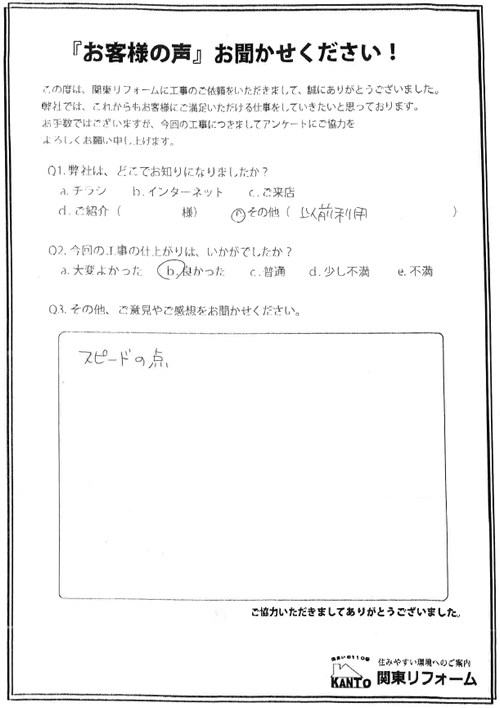 『お客様の声』お聞かせください！
この度は、関東リフォームに工事のご依頼をいただきまして、誠にありがとうございました。
弊社では、これからもお客様にご満足いただける仕事をしていきたいと思っております。
お手数ではございますが、今回の工事につきましてアンケートにご協力を
よろしくお願い申し上げます。
Q1. 弊社は、どこでお知りになりましたか？
a. チラシ b. インターネット c. ご来店
d. ご紹介（ 様） e. その他（ 以前利用 ）
Q2. 今回の工事の仕上がりは、いかがでしたか？
a. 大変よかった b. 良かった c. 普通 d. 少し不満 e. 不満
Q3. その他、ご意見やご感想をお聞かせください。
スピードの点
ご協力いただきましてありがとうございました。
住まいの110番
KANTO
住みやすい環境へのご案内
関東リフォーム